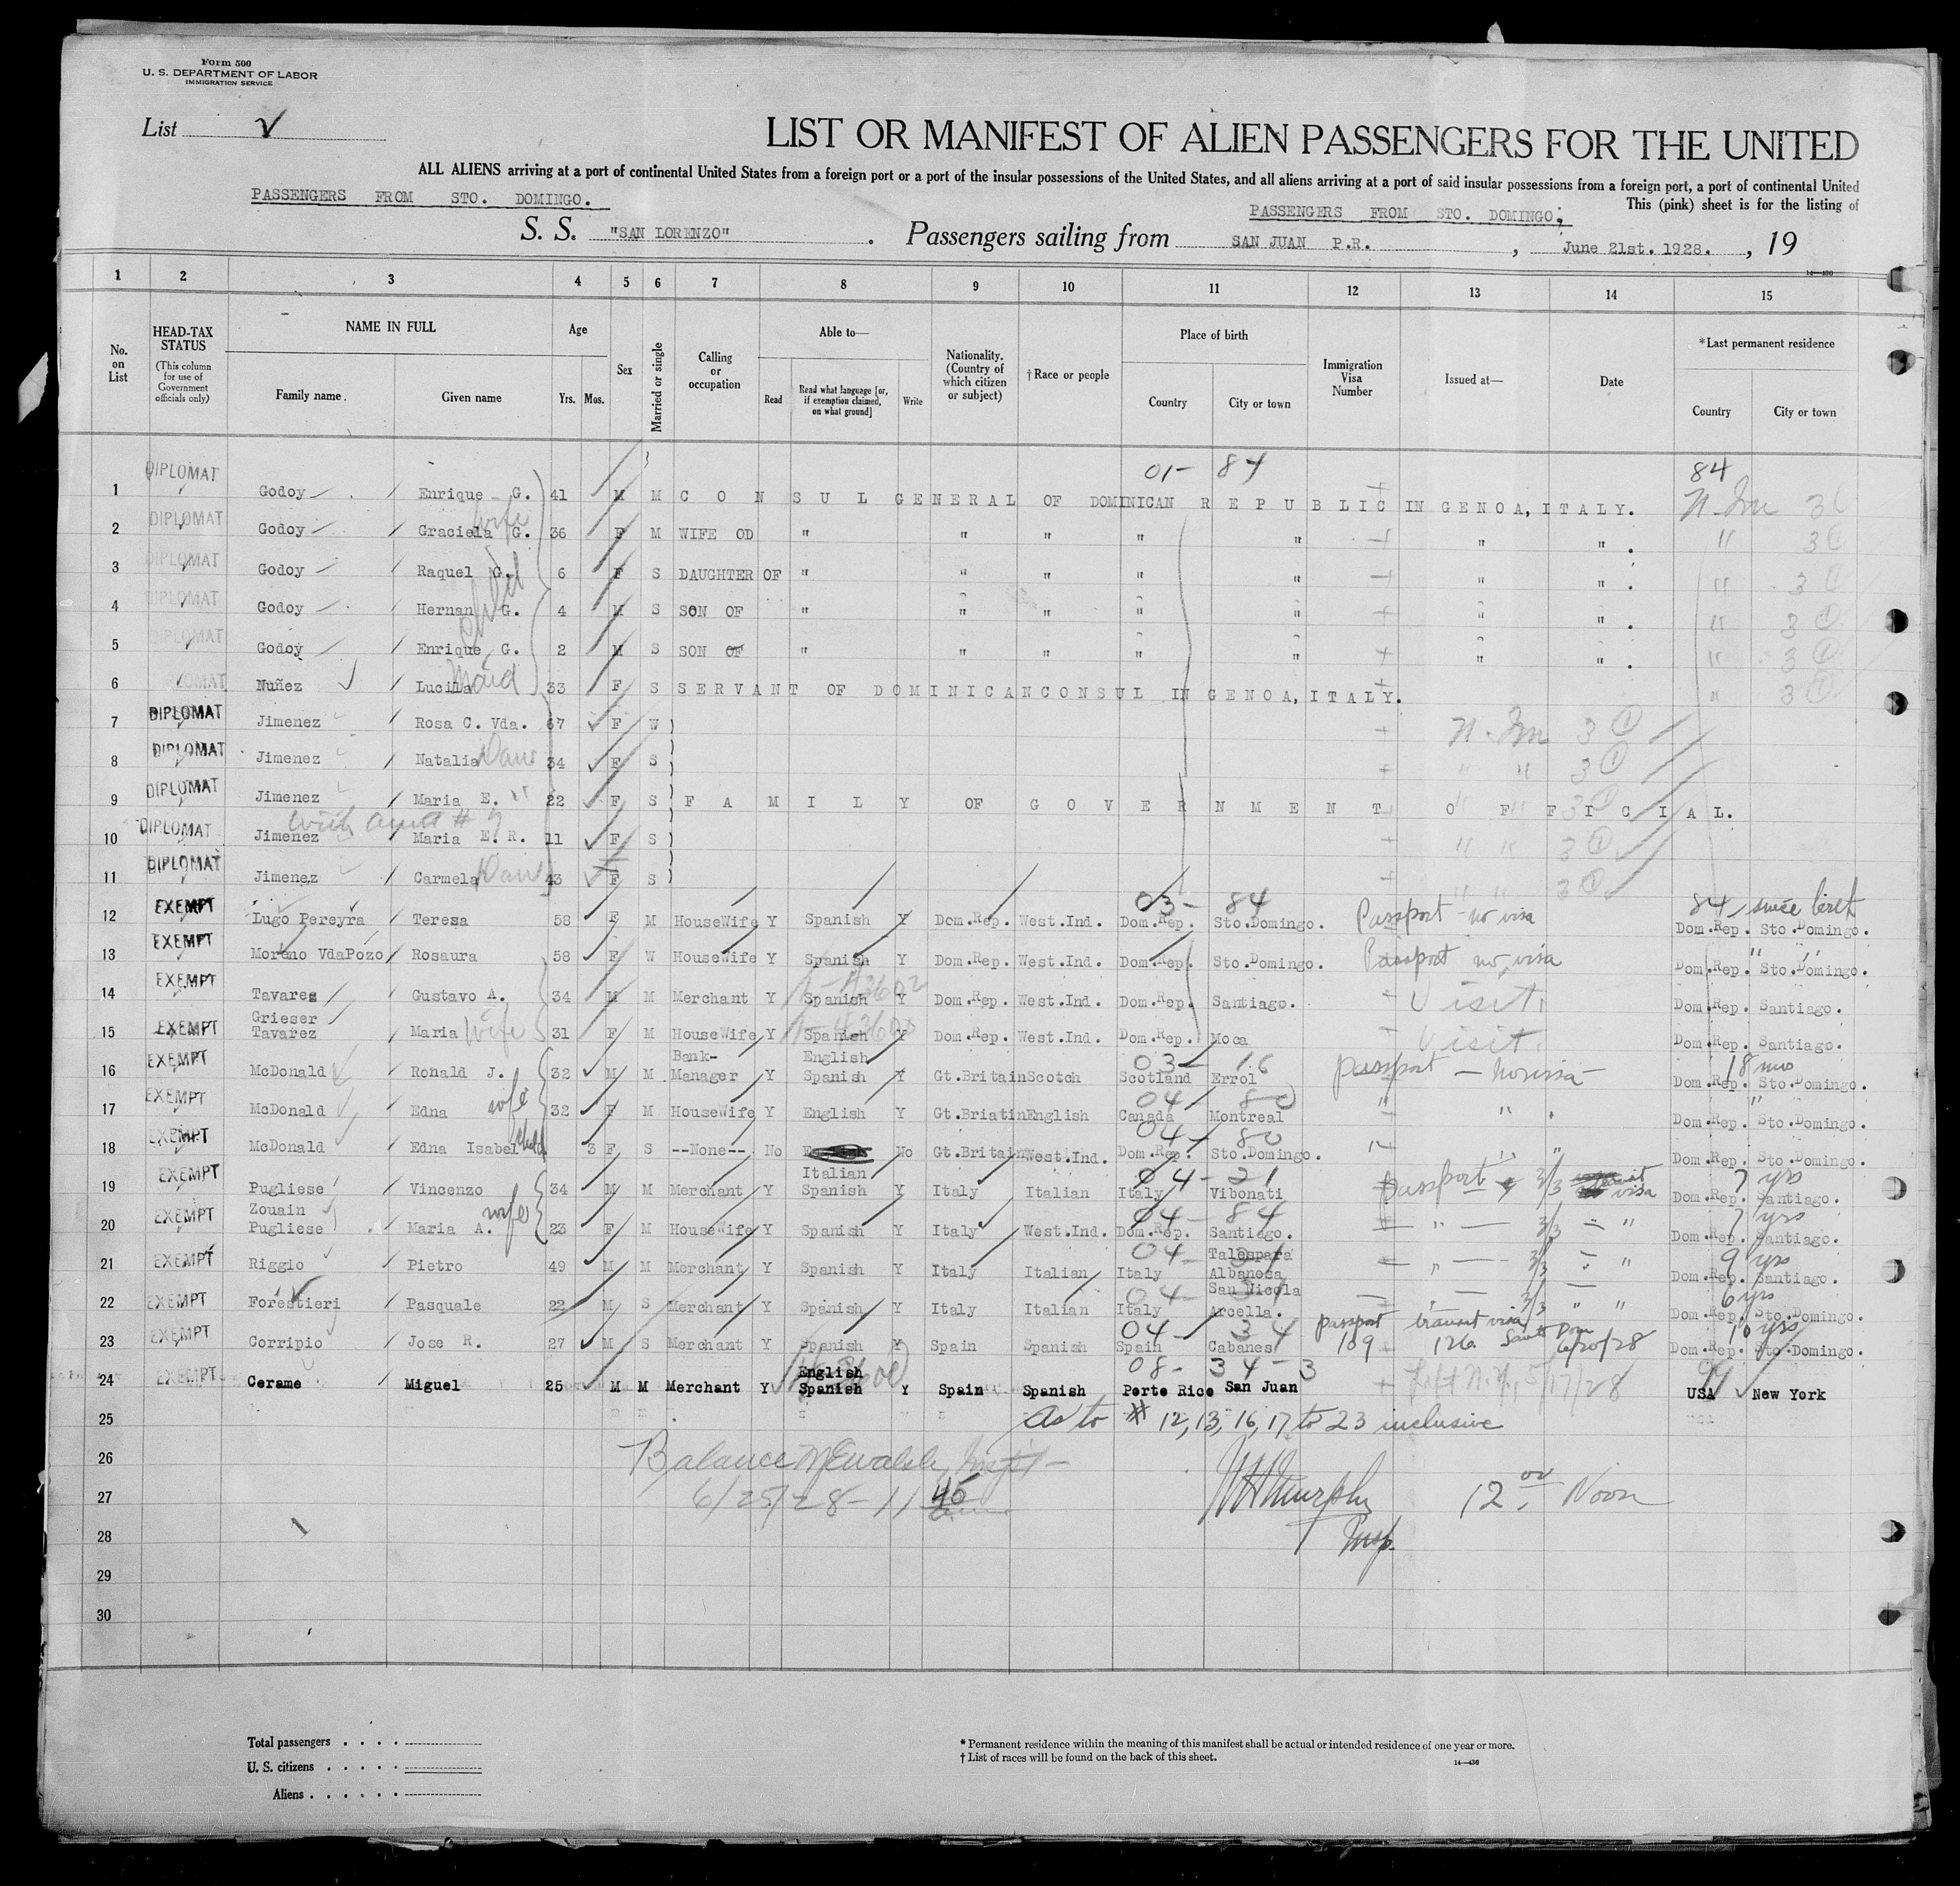 Form 500
U. S. DEPARTMENT OF LABOR
IMMIGRATION SERVICE
List
LIST OR MANIFEST OF ALIEN PASSENGERS FOR THE UNITED
ALL ALIENS arriving at a port of continental United States from a foreign port or a port of the insular possessions of the United States, and all aliens arriving at a port of said insular possessions from a foreign port, a port of continental United
This (pink) sheet is for the listing of
PASSENGERS FROM STO. DOMINGO.
PASSENGERS FROM STO. DOMINGO;
S. S. "SAN LORENZO" . Passengers sailing from SAN JUAN P.R. , June 21st. 1928. , 19
14—430
1 2 3 4 5 6 7 8 9 10 11 12 13 14 15
No. on List
HEAD-TAX STATUS
(This column for use of Government officials only)
NAME IN FULL
Family name
Given name
Age
Yrs. Mos.
Sex
Married or single
Calling or occupation
Able to—
Read
Read what language [or, if exemption claimed, on what ground]
Write
Nationality. (Country of which citizen or subject)
†Race or people
Place of birth
Country
City or town
Immigration Visa Number
Issued at—
Date
*Last permanent residence
Country
City or town
01- 84 84
1 DIPLOMAT Godoy Enrique G. 41 M M CONSUL GENERAL OF DOMINICAN REPUBLIC IN GENOA, ITALY.
wife
2 DIPLOMAT Godoy Graciela G. 36 F M WIFE OD " " " " " " " . " 3
3 DIPLOMAT Godoy Raquel G. 6 F S DAUGHTER OF " " " " " " " . " 3
4 DIPLOMAT Godoy Hernan G. 4 M S SON OF " " " " " " " . " 3
5 DIPLOMAT Godoy Enrique G. 2 M S SON OF " " " " " " " . " 3
6 DIPLOMAT Nuñez Lucila maid 33 F S SERVANT OF DOMINICAN CONSUL IN GENOA, ITALY. " 3
7 DIPLOMAT Jimenez Rosa C. Vda. 67 F W ) 3
8 DIPLOMAT Jimenez Natalia 34 F S ) " " 3
9 DIPLOMAT Jimenez Maria E. " 22 F S FAMILY OF GOVERNMENT OFFICIAL.
with aunt # 9
10 DIPLOMAT Jimenez Maria E. R. 11 F S ) " " 3
11 DIPLOMAT Jimenez Carmela 43 F S ) " " 3
03- 84 84 since birth
12 EXEMPT Lugo Pereyra Teresa 58 F M HouseWife Y Spanish Y Dom.Rep. West.Ind. Dom.Rep. Sto.Domingo. Passport - no visa Dom.Rep. Sto.Domingo.
13 EXEMPT Moreno VdaPozo Rosaura 58 F W HouseWife Y Spanish Y Dom.Rep. West.Ind. Dom.Rep. Sto.Domingo. Passport no visa Dom.Rep. Sto.Domingo.
14 EXEMPT Tavares Gustavo A. 34 M M Merchant Y Spanish Y Dom.Rep. West.Ind. Dom.Rep. Santiago. Visit Dom.Rep. Santiago.
Grieser
15 EXEMPT Tavarez Maria wife 31 F M HouseWife Y Spanish Y Dom.Rep. West.Ind. Dom.Rep. Moca Visit. Dom.Rep. Santiago.
Bank- English 03- 16 18 mos
16 EXEMPT McDonald Ronald J. 32 M M Manager Y Spanish Y Gt.Britain Scotch Scotland Errol passport — no visa Dom.Rep. Sto.Domingo.
04 80 "
17 EXEMPT McDonald Edna wife 32 F M HouseWife Y English Y Gt.Briatin English Canada Montreal " " . Dom.Rep. Sto.Domingo.
04 - 80
18 EXEMPT McDonald Edna Isabel child 3 F S --None-- No No Gt.Britain West.Ind. Dom.Rep. Sto.Domingo. " " Dom.Rep. Sto.Domingo.
Italian 04-21 7 yrs
19 EXEMPT Pugliese Vincenzo 34 M M Merchant Y Spanish Y Italy Italian Italy Vibonati passport 3/3 visa Dom.Rep. Santiago.
Zouain 04- 84 7 yrs
20 EXEMPT Pugliese Maria A. wife 23 F M HouseWife Y Spanish Y Italy West.Ind. Dom.Rep. Santiago. " 3/3 " Dom.Rep. Santiago.
04- Talespara 9 yrs
21 EXEMPT Riggio Pietro 49 M M Merchant Y Spanish Y Italy Italian Italy Albanesa " 3/3 " Dom.Rep. Santiago.
04- San Nicola 6 yrs
22 EXEMPT Forestieri Pasquale 22 M S Merchant Y Spanish Y Italy Italian Italy Arcella. " 3/3 " " Dom.Rep. Sto.Domingo.
04- 34 passport transit visa 10 yrs
23 EXEMPT Corripio Jose R. 27 M S Merchant Y Spanish Y Spain Spanish Spain Cabanes 189 126 6/20/28 Dom.Rep. Sto.Domingo.
English 08- 34-3
24 EXEMPT Cerame Miguel 25 M M Merchant Y Spanish Y Spain Spanish Porto Rico San Juan Left N.Y. 5/17/28 USA New York
25 As to # 12, 13, 16, 17 to 23 inclusive
26 Balance
27 6/25/28 - 11 45 12 00 Noon
28 Insp.
29
30
Total passengers . . . .
U. S. citizens . . . . .
Aliens . . . . . .
* Permanent residence within the meaning of this manifest shall be actual or intended residence of one year or more.
† List of races will be found on the back of this sheet.
14—430